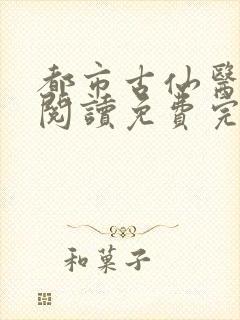 都市古仙醫
閱讀免費完
和菓子